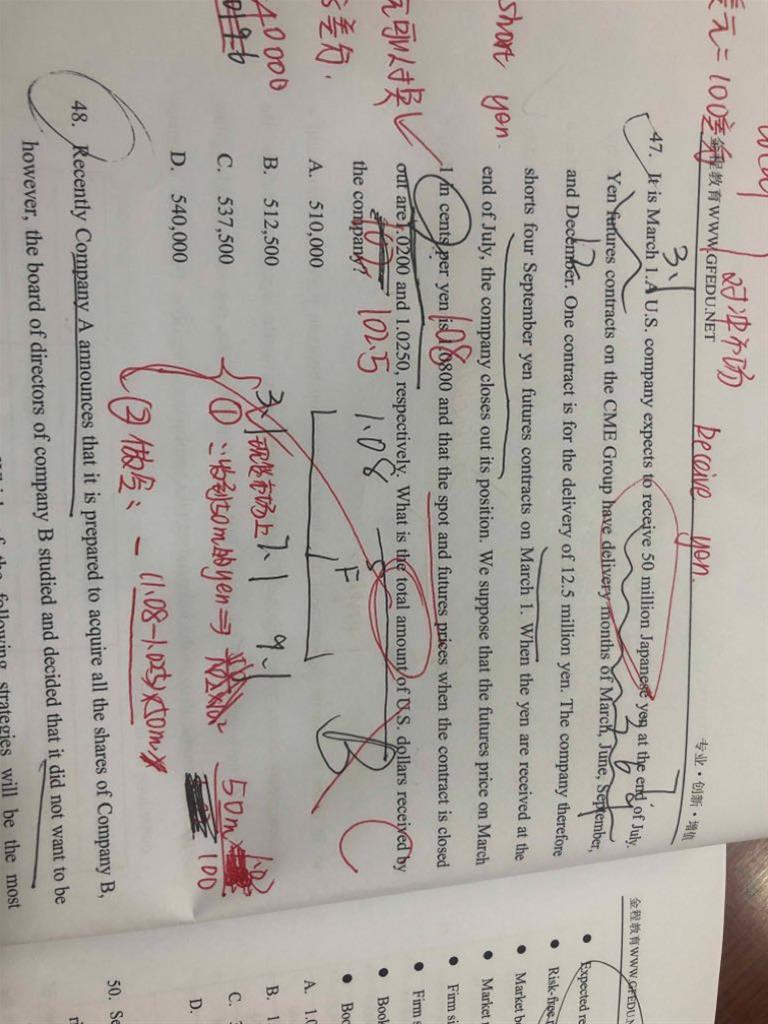 金程教育WWW.GFEDU.NET
专业·创新·增值
对冲市场
receive yen.
47. It is March 1. A U.S. company expects to receive 50 million Japanese yen at the end of July.
Yen futures contracts on the CME Group have delivery months of March, June, September,
and December. One contract is for the delivery of 12.5 million yen. The company therefore
shorts four September yen futures contracts on March 1. When the yen are received at the
end of July, the company closes out its position. We suppose that the futures price on March
1 in cents per yen is 1.0800 and that the spot and futures prices when the contract is closed
out are 1.0200 and 1.0250, respectively. What is the total amount of U.S. dollars received by
the company?
A. 510,000
B. 512,500
C. 537,500
D. 540,000
short yen.
3.1
12
1.08
102.5
1.08
F
3.1
7.1
9.1
B
C
① 收到50m的yen ⇒
50m
100
② 做空: - (1.08-1.025)×50m
48. Recently Company A announces that it is prepared to acquire all the shares of Company B,
however, the board of directors of company B studied and decided that it did not want to be
following strategies will be the most
金程教育WWW.GFEDU.N
Expected re
Risk-free
Market b
Market
Firm si
Firm s
Book
Boo
A. 1.0
B. 1
C.
D.
50. Se